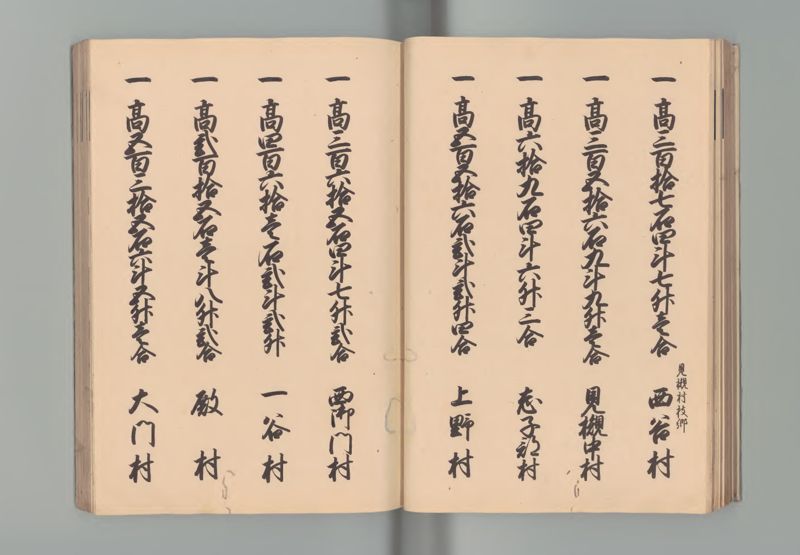 見槻村枝郷
一 髙三百拾七石四斗七升壱合 西谷村
一 髙三百五拾六石九斗九升壱合 見槻中村
一 髙六拾九石四斗六升三合 志子部村
一 髙五百五拾六石弐斗弐升四合 上野村
一 髙三百六拾五石四斗七升弐合 西御門村
一 髙四百六拾壱石弐斗弐升 一谷村
一 髙弐百拾五石壱斗八升弐合 殿村
一 髙五百三拾五石六斗五升壱合 大門村